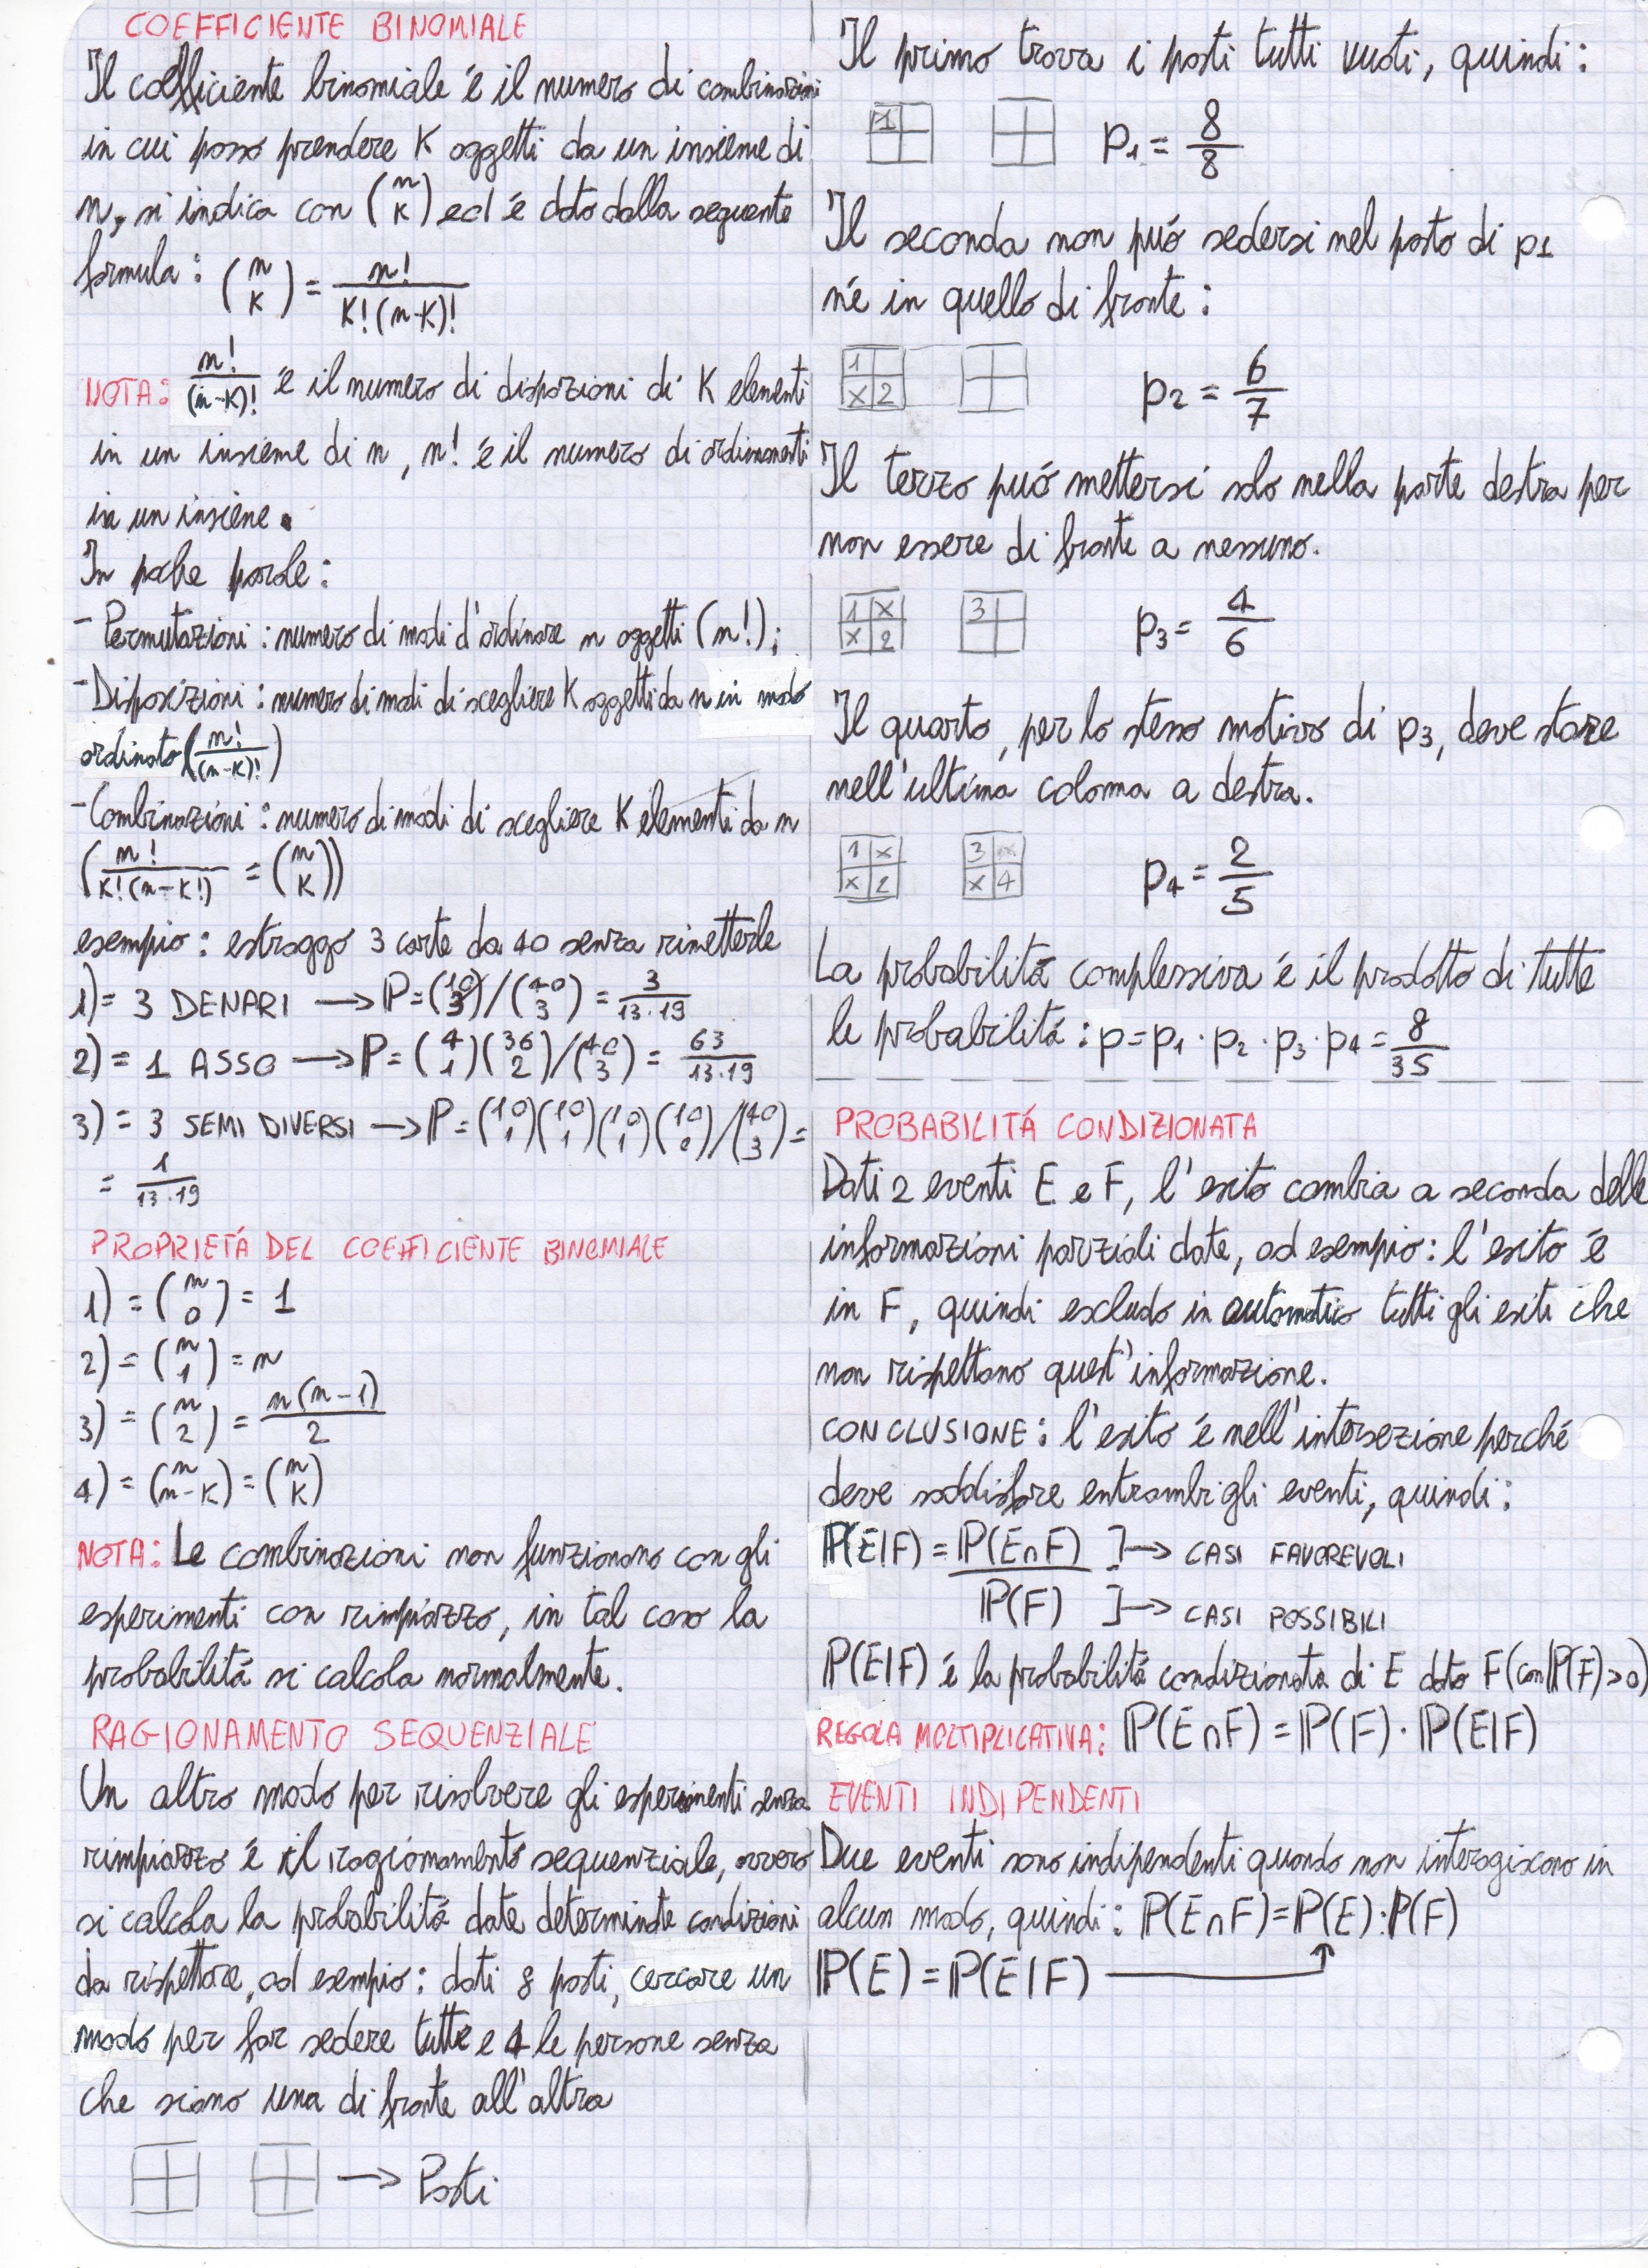 COEFFICIENTE BINOMIALE
Il coefficiente binomiale é il numero di combinazioni
in cui posso prendere K oggetti da un insieme di
n, si indica con (n K) ed é dato dalla seguente
formula: (n K) = n! / K!(n-K)!
NOTA: n!/(n-K)! é il numero di disposizioni di K elementi
in un insieme di n, n! é il numero di ordinamenti
in un insieme.
In poche parole:
- Permutazioni: numero di modi d'ordinare n oggetti (n!);
- Disposizioni: numero di modi di scegliere K oggetti da n in modo
ordinato (n!/(n-K)!)
- Combinazioni: numero di modi di scegliere K elementi da n
(n!/K!(n-K!) = (n K))
esempio: estraggo 3 carte da 40 senza rimetterle
1) = 3 DENARI → P = (10 3)/(40 3) = 3/13·19
2) = 1 ASSO → P = (4 1)(36 2)/(40 3) = 63/13·19
3) = 3 SEMI DIVERSI → P = (10 1)(10 1)(10 1)(10 0)/(40 3) =
= 1/13·19
PROPRIETÁ DEL COEFFICIENTE BINOMIALE
1) = (n 0) = 1
2) = (n 1) = n
3) = (n 2) = n(n-1)/2
4) = (n n-K) = (n K)
NOTA: Le combinazioni non funzionano con gli
esperimenti con rimpiazzo, in tal caso la
probabilitá si calcola normalmente.
RAGIONAMENTO SEQUENZIALE
Un altro modo per risolvere gli esperimenti senza
rimpiazzo é il ragionamento sequenziale, ovvero
si calcola la probabilitá date determinate condizioni
da rispettare, ad esempio: dati 8 posti, cercare un
modo per far sedere tutte e 4 le persone senza
che siano una di fronte all'altra
→ Posti
Il primo trova i posti tutti vuoti, quindi:
1 p1 = 8/8
Il seconda non puó sedersi nel posto di p1
né in quello di fronte:
1
X 2 p2 = 6/7
Il terzo puó mettersi solo nella parte destra per
non essere di fronte a nessuno.
1 X 3
X 2 p3 = 4/6
Il quarto, per lo stesso motivo di p3, deve stare
nell'ultima colonna a destra.
1 X 3 X
X 2 X 4 p4 = 2/5
La probabilitá complessiva é il prodotto di tutte
le probabilitá: p = p1 · p2 · p3 · p4 = 8/35
PROBABILITÁ CONDIZIONATA
Dati 2 eventi E e F, l'esito cambia a seconda delle
informazioni parziali date, ad esempio: l'esito é
in F, quindi escludo in automatico tutti gli esiti che
non rispettano quest'informazione.
CONCLUSIONE: l'esito é nell'intersezione perché
deve soddisfare entrambi gli eventi, quindi:
P(E|F) = P(E∩F) ]→ CASI FAVOREVOLI
P(F) ]→ CASI POSSIBILI
P(E|F) é la probabilitá condizionata di E dato F (con P(F)>0)
REGOLA MOLTIPLICATIVA: P(E∩F) = P(F) · P(E|F)
EVENTI INDIPENDENTI
Due eventi sono indipendenti quando non interagiscono in
alcun modo, quindi: P(E∩F) = P(E)·P(F)
P(E) = P(E|F)